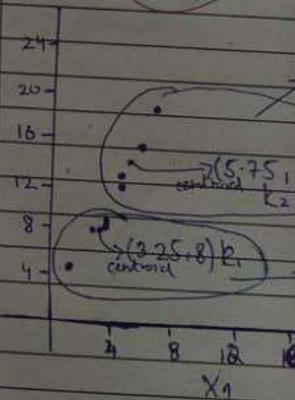 24
20
16
(5.75,
centroid
12
k2
8
(3.25,8) k1
centroid
4
4 8 12 16
X1